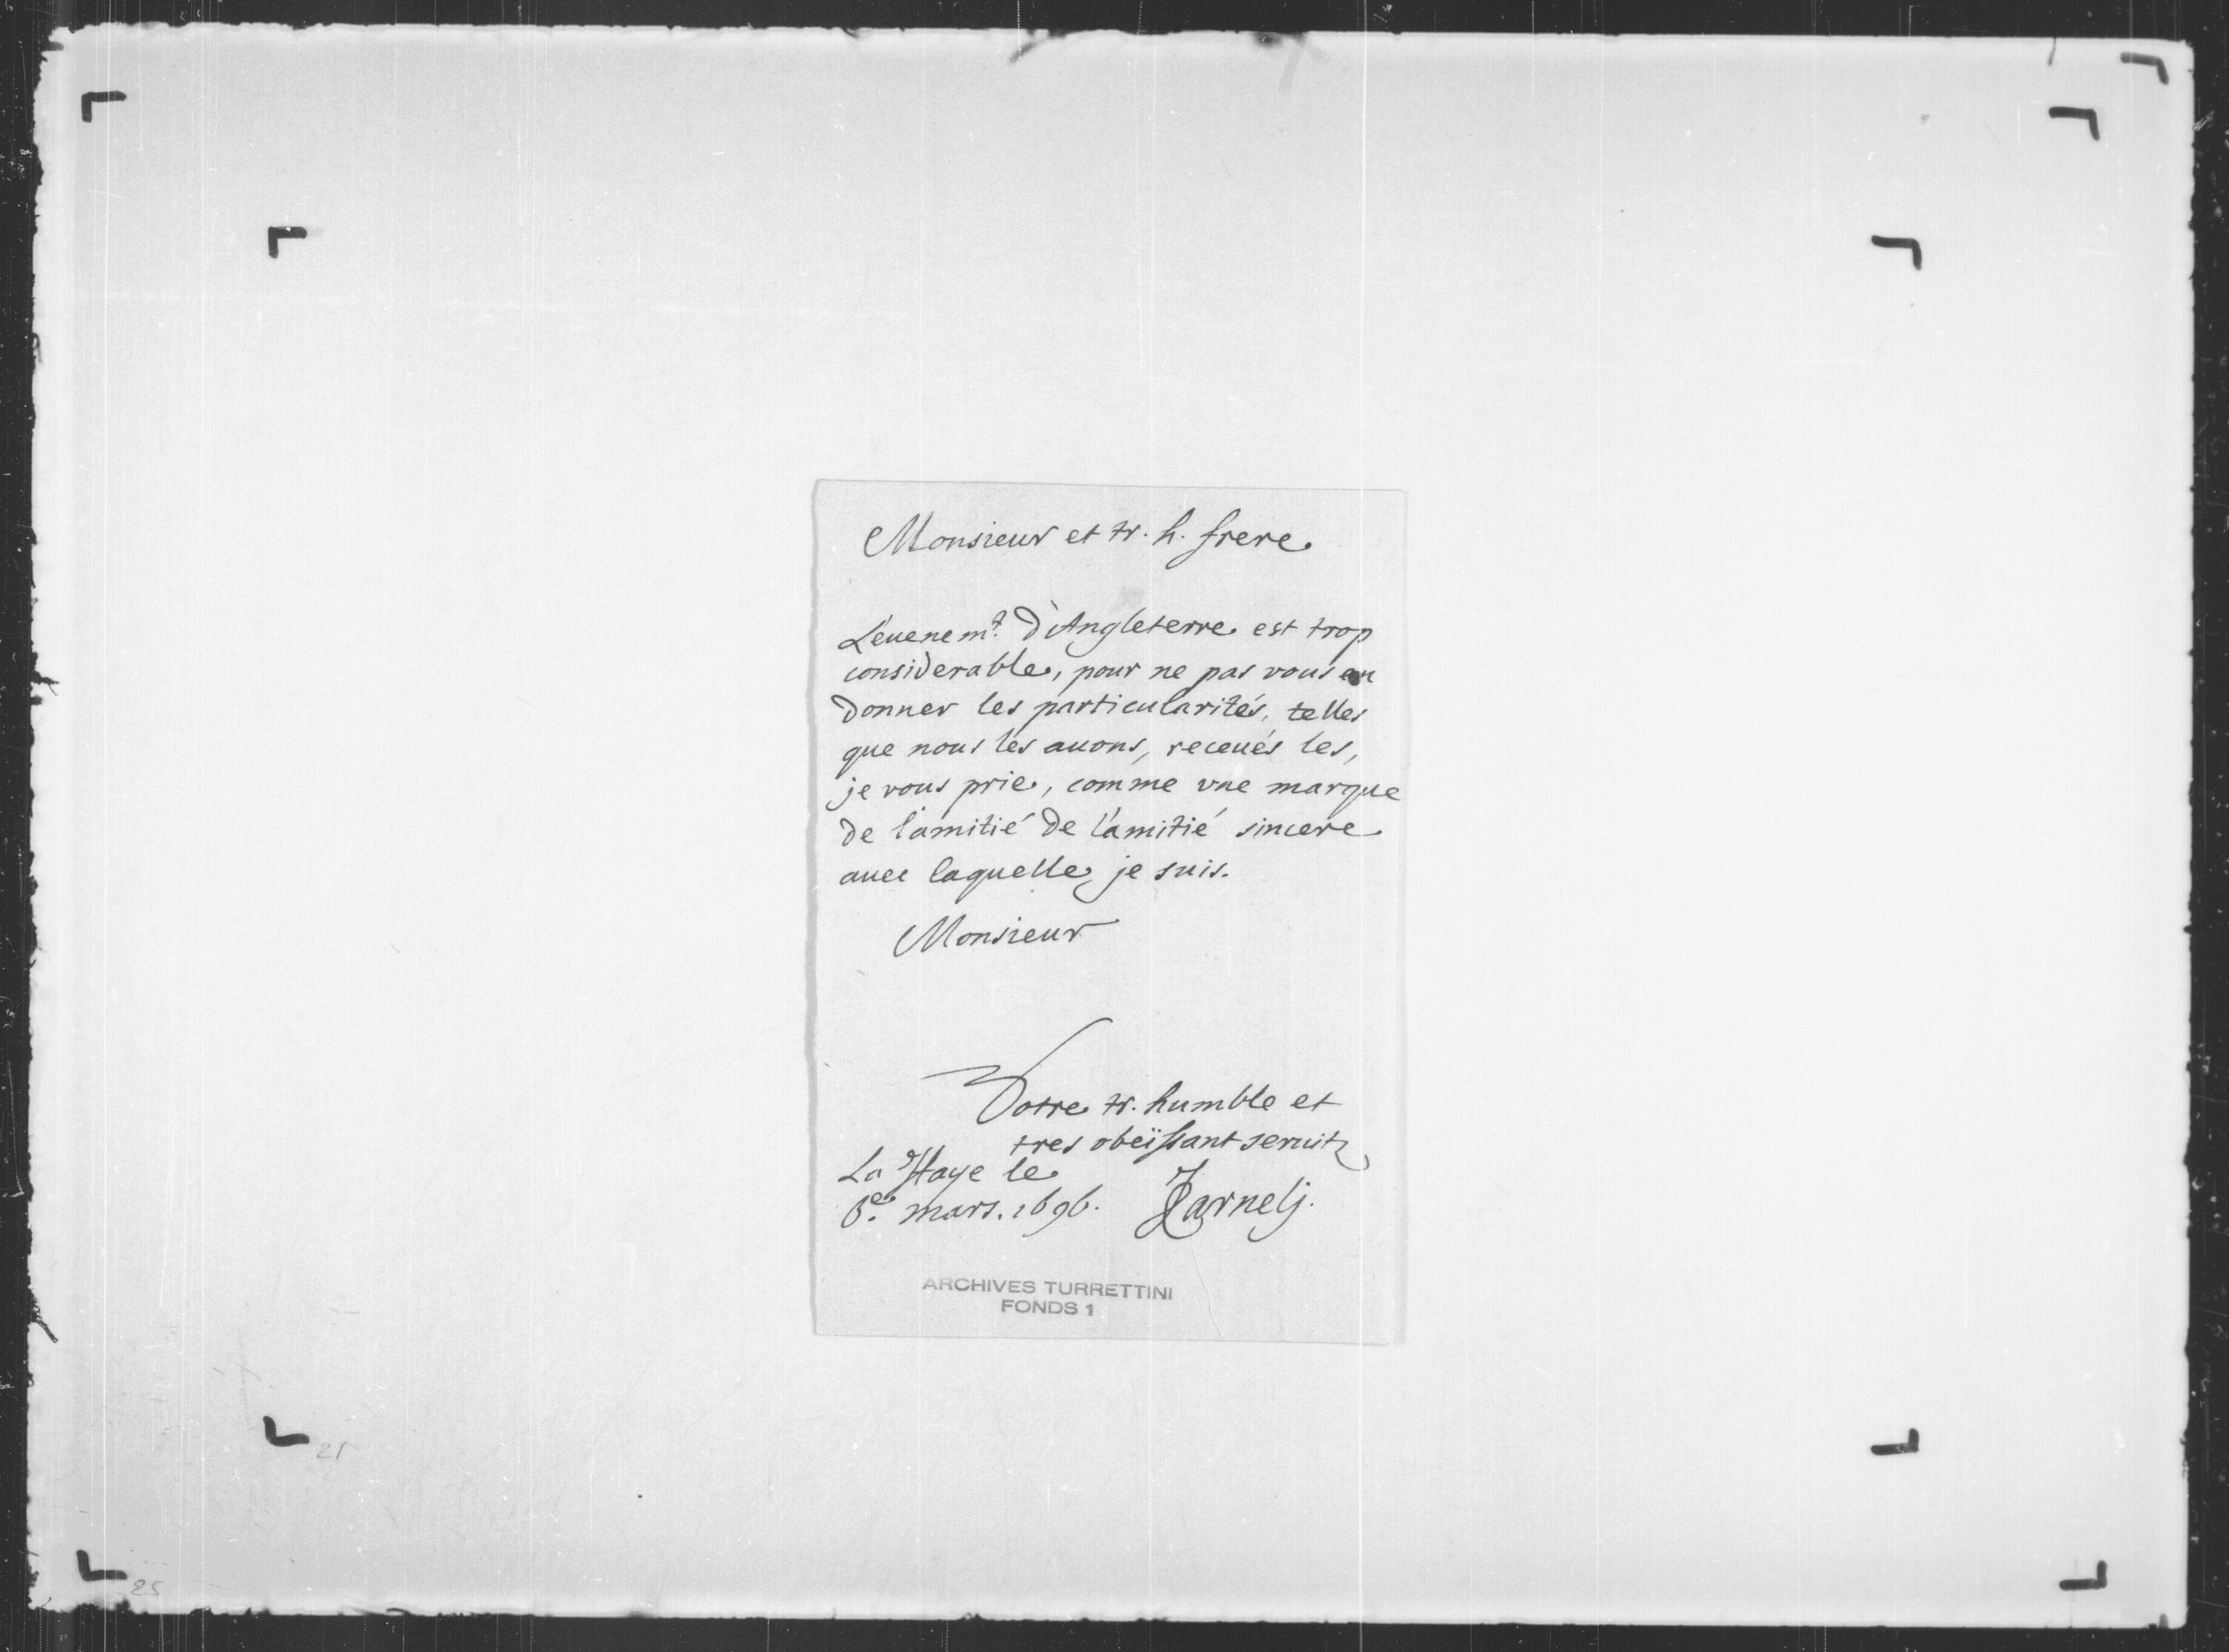 Monsieur et tr. h. frere
L'euenemt. d'Angleterre est trop
considerable, pour ne pas vous en
donner les particularités, telles
que nous les auons, receués les,
je vous prie, comme vne marque
de l'amitié de l'amitié sincere
auec laquelle je suis.
Monsieur
Votre tr. humble et
tres obeïssant seruitr
La Haye le
6e. mars. 1696.
ARCHIVES TURRETTINI
FONDS 1
21
25